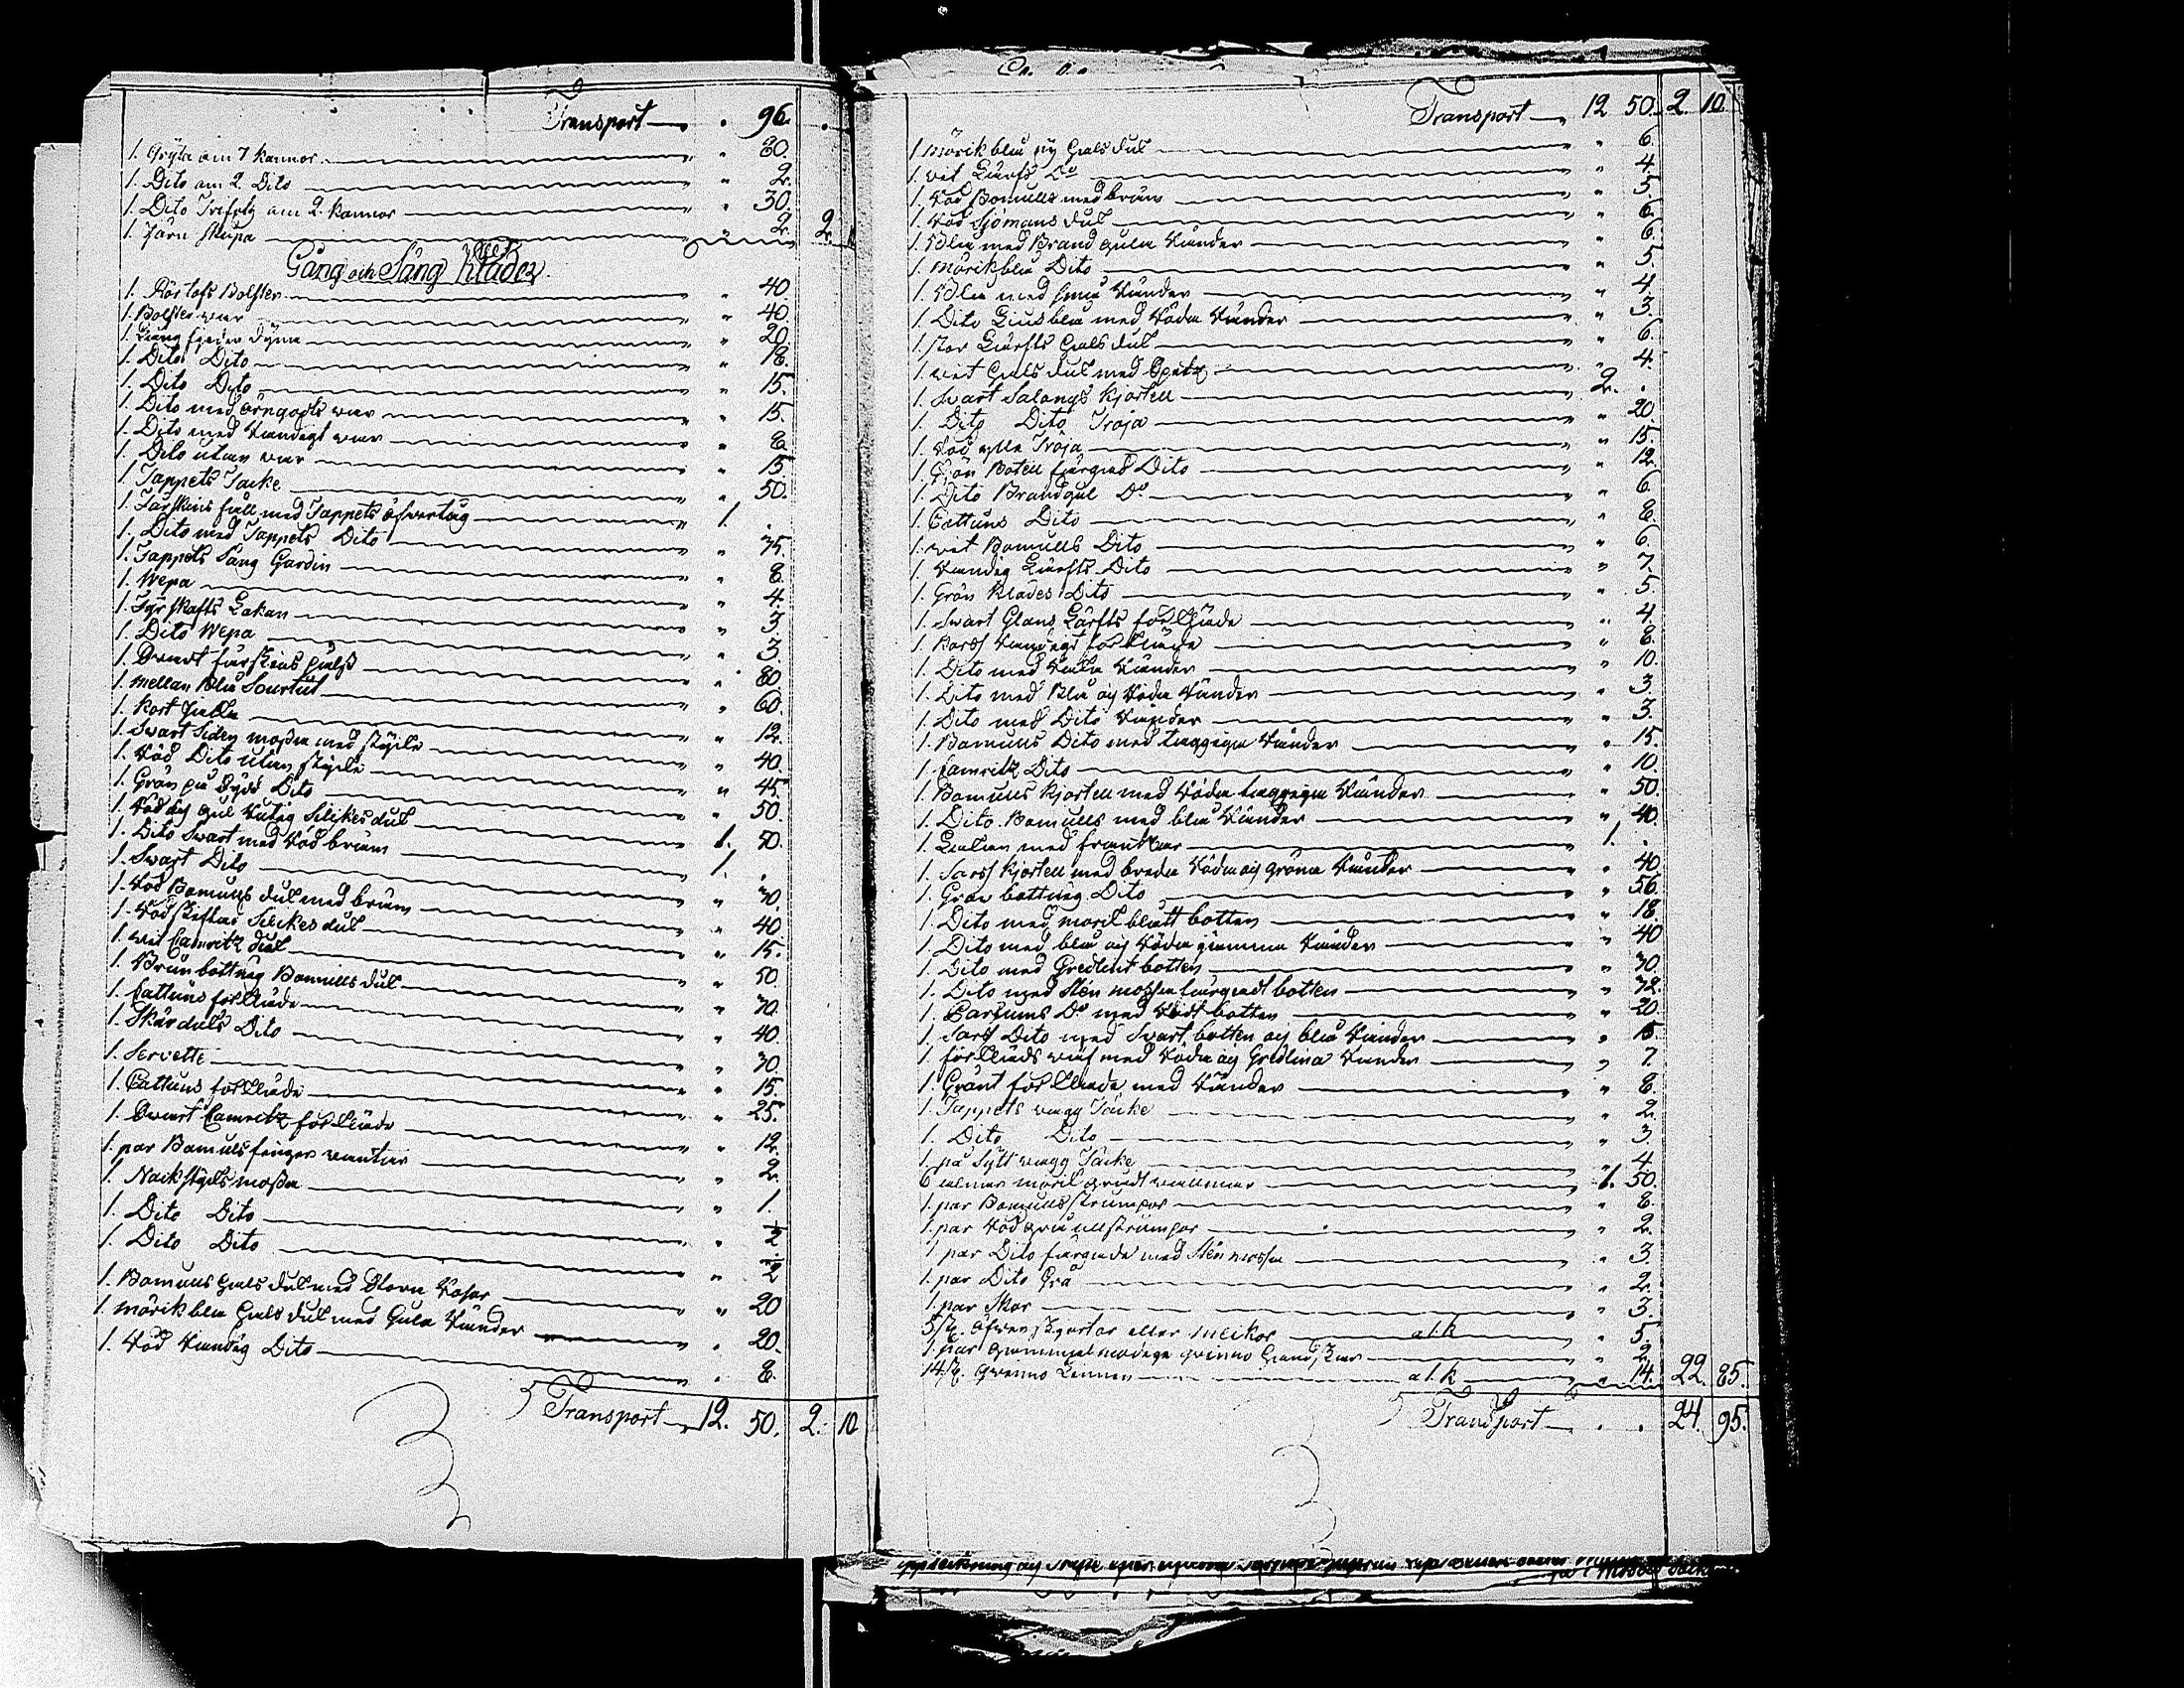 Transport — " 96.
1. Gryta om 7 kannor — " 80.
1. Dito om 2. Dito — " 2.
1. Dito Trefots om 2. kannor — " 30.
1. Järn skupa — " 2. 2. 10
Gång och Säng Kläder
1. Bolster — " 40
1. Bolster war — " 40.
1. Läng fieder dyna — " 20.
1. Dito Dito — " 18.
1. Dito Dito — " 15.
1. Dito med örngåtts war — " 15.
1. Dito med Randigt war — " 8.
1. Dito utan war — " 15
1. Tappets Täcke — " 50.
1. Fårskins fäll med Tappets öfwertåg — 1. "
1. Dito med Tappets Dito — " 75.
1. Tappets Säng Gardin — " 8.
1. Wepa — " 4.
1. Fyrskafts Lakan — " 3
1. Dito Wepa — " 3
1. Swart fårskins päls — " 80
1. mellan Blå Sourtut — " 60.
1. Kort — " 12.
1. Swart Siden mössa med stycke — " 40.
1. Röd Dito utan stycke — " 45.
1. Grön på Sydd Dito — " 50.
1. Röd och gul Rutig Silkesduk — 1. 50.
1. Dito Swart med Röd bräm — 1. "
1. Swart Dito — " 70.
1. Röd Bomulls duk med bräm — " 40.
1. Röd Silckes duk — " 15.
1. wit Camritz duk — " 50
1. Brun bottnig Bomulls duk — " 70.
1. Cattuns förkläde — " 40.
1. Skärduks Dito — " 30.
1. Serviette — " 15.
1. Cattuns förkläde — " 25.
1. Swart Camritz förkläde — " 12.
1. par Bomuls finger wantar — " 2.
1. Nackstycks mössa — " 1.
1. Dito Dito — " 1/2
1. Dito Dito — " 1/2
1. Bomulls halsduk med stora Rosor — " 20
1. mörckblå halsduk med Gula Ränder — " 20.
1. Röd Randig Dito — " 8.
Transport — 12. 50. 2. 10
Transport — 12 50. 2. 10.
1 mörckblå ny halsduk — " 6.
1. wit Lärfts Do — " 4.
1. Röd Bomulls med bräm — " 5.
1. Röd Sjömans duk — " 6.
1. Blå med Brand gula Ränder — " 6.
1. mörckblå Dito — " 5.
1. Blå med små Ränder — " 4.
1. Dito Liusblå med Röda Ränder — " 3.
1. stor Lärfts halsduk — " 6.
1. wit halsduk med Spets — " 4.
1. Swart Salongs Kjortell — 2. "
1. Dito Dito Tröja — " 20.
1. Röd ylle Tröja — " 15.
1. Grön Botell färgad Dito — " 12.
1. Dito Brandgul Do — " 6.
1. Cattuns Dito — " 8.
1. wit Bomulls Dito — " 6.
1. Randig Lärfts Dito — " 7.
1. Grön Klädes Dito — " 5.
1. Swart Glans Lärfts förkläde — " 4.
1. Randigt förkläde — " 8.
1. Dito med Ränder — " 10.
1. Dito med Blå och Röda Ränder — " 3.
1. Dito med Dito Ränder — " 3.
1. Bomuls Dito med taggiga Ränder — " 15.
1. Camritz Dito — " 10.
1. Bomulls kjortell med Röda taggiga Ränder — " 50
1. Dito Bomulls med blå Ränder — " 40.
1. med frantzar — 1. "
1. Sars kjortell med breda Röda och gröna Ränder — " 40.
1. Grön bottnig Dito — " 56.
1. Dito med morckblått botten — " 18.
1. Dito med blå och Röda Ränder — " 40
1. Dito med Gredlint botten — " 30.
1. Dito med Sten mossa färgadt botten — " 32.
1. Do med Rödt botten — " 20.
1. Sars Dito med Swart botten och blå Ränder — " 15.
1. förkläds wäf med Röda och Gredlina Ränder — " 7.
1. Grönt förkläde med Ränder — " 8.
1. Tappets wagg Täcke — " 2.
1. Dito Dito — " 3.
1. på Sytt wagg Täcke — " 4.
6 alnar mörck grått wallmar — 1. 50.
1. par Bomulls strumpor — " 8.
1. par Röd grå ullstrumpor — " 2.
1 par Dito färgade med Sten mossa — " 3.
1. par Dito Grå — " 2.
1. par Skor — " 3.
5 st. Öfwerskjortor eller — a 1. k — " 5.
1. par — " 2.
14 st. Qwinno Linnen — a 1. k — " 14. 22. 85.
Transport — " " 24. 95.